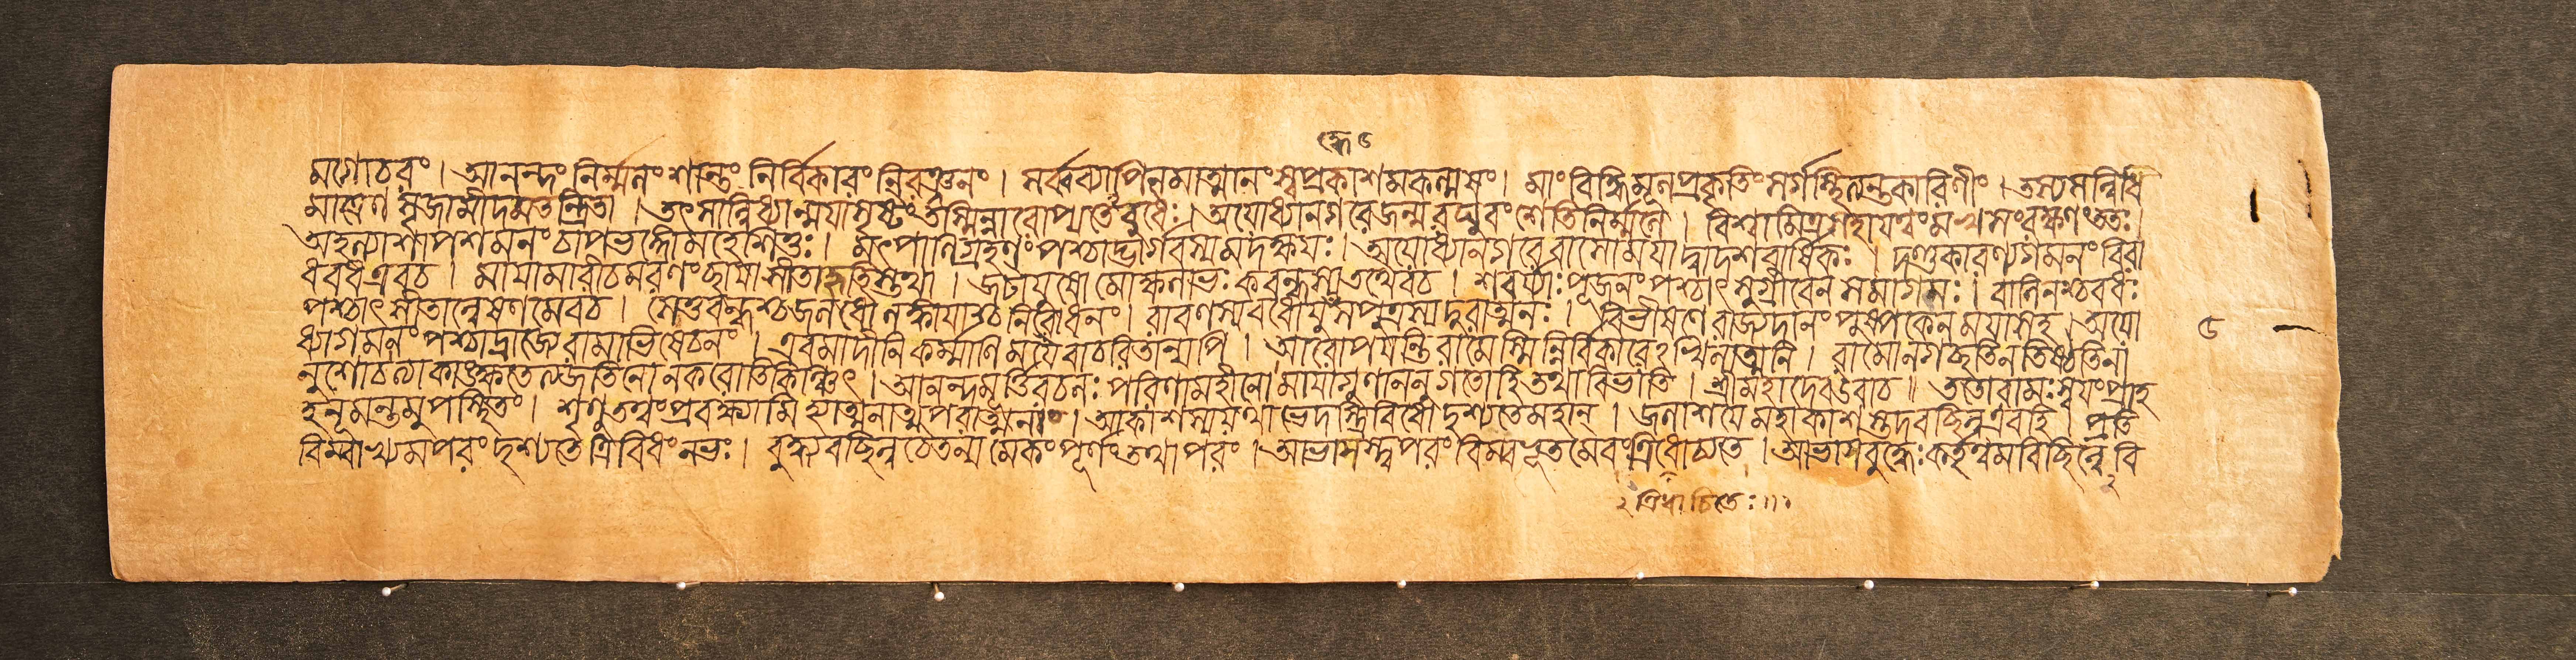 হ্মে ৫
মগোচরং । আনন্দং নির্ম্মলং শান্তং নির্বিকারং নিরঞ্জনং । সর্ব্বব্যাপিনমাত্মানং স্বপ্রকাশমকল্মষং । মাং বিদ্ধিমূলপ্রকৃতিং সর্গস্থিত্যন্তকারিণীং । তস্যসন্নিধি
মাত্রেণ সৃজামীদমতন্দ্রিতা । তৎসান্নিধ্যান্ময়াসৃষ্টং তস্মিন্নারোপ্যতেঽবুধৈঃ । অযোধ্যানগরেজন্মরঘুবংশেতিনির্ম্মলে । বিশ্বামিত্রসহায়ত্বং মখসংরক্ষণংততঃ ।
অহল্যাশাপশমনং চাপভঙ্গোমহেশিতুঃ । মৎপাণিগ্রহণং পশ্চাদ্ভার্গবস্যমদক্ষয়ঃ । অযোধ্যানগরেবাসোময়াদ্বাদশবার্ষিকঃ । দণ্ডকারণ্যগমনং বিরা
ধবধএবচ । মায়ামারীচমরণং ছায়াসীতাহৃতিস্তথা । জটায়ুষোমোক্ষলাভঃ কবন্ধস্যতথৈবচ । শবর্য্যাঃ পূজনং পশ্চাৎ সুগ্রীবেনসমাগমঃ । বালিনশ্চবধঃ
পশ্চাৎ সীতান্বেষণমেবচ । সেতুবন্ধশ্চজলধৌলঙ্কায়াশ্চনিরোধনং । রাবণস্যবধোযুদ্ধেসপুত্রস্যদুরাত্মনঃ । বিভীষণেরাজ্যদানং পুষ্পকেনময়াসহ । অযো
ধ্যাগমনং পশ্চাদ্রাজ্যেরামাভিষেচনং । এবমাদীনিকর্ম্মাণিময়ৈবাচরিতান্যপি । আরোপয়ন্তিরামেস্মিন্নির্বিকারেঽখিলাত্মনি । রামোনগচ্ছতিনতিষ্ঠতিনা
নুশোচত্যাকাঙ্ক্ষতেত্যজতিনোনকরোতিকিঞ্চিৎ । আনন্দমূর্ত্তিরচলঃ পরিণামহীনোমায়াগুণাননুগতোহিতথাবিভাতি । শ্রীমহাদেবউবাচ ॥ ততোরামঃ স্বয়ংপ্রাহ
হনূমন্তমুপস্থিতং । শৃণুতত্ত্বংপ্রবক্ষ্যামিহ্যাত্মনাত্মপরাত্মনাং । আকাশস্যযথাভেদস্ত্রিবিধোদৃশ্যতেমহান্ । জলাশয়েমহাকাশস্তদবচ্ছিন্নএবহি । প্রতি
বিম্বাখ্যমপরং দৃশ্যতেত্রিবিধংনভঃ । বুদ্ধ্যবচ্ছিন্নচৈতন্যমেকংপূর্ণংতথাপরং । আভাসস্ত্বপরং বিম্বভূতমেবং ত্রিধোচ্যতে । আভাসবুদ্ধেঃ কর্তৃত্বমবিচ্ছিন্নে বি
২ ত্রিধা চিতেঃ ॥
৫